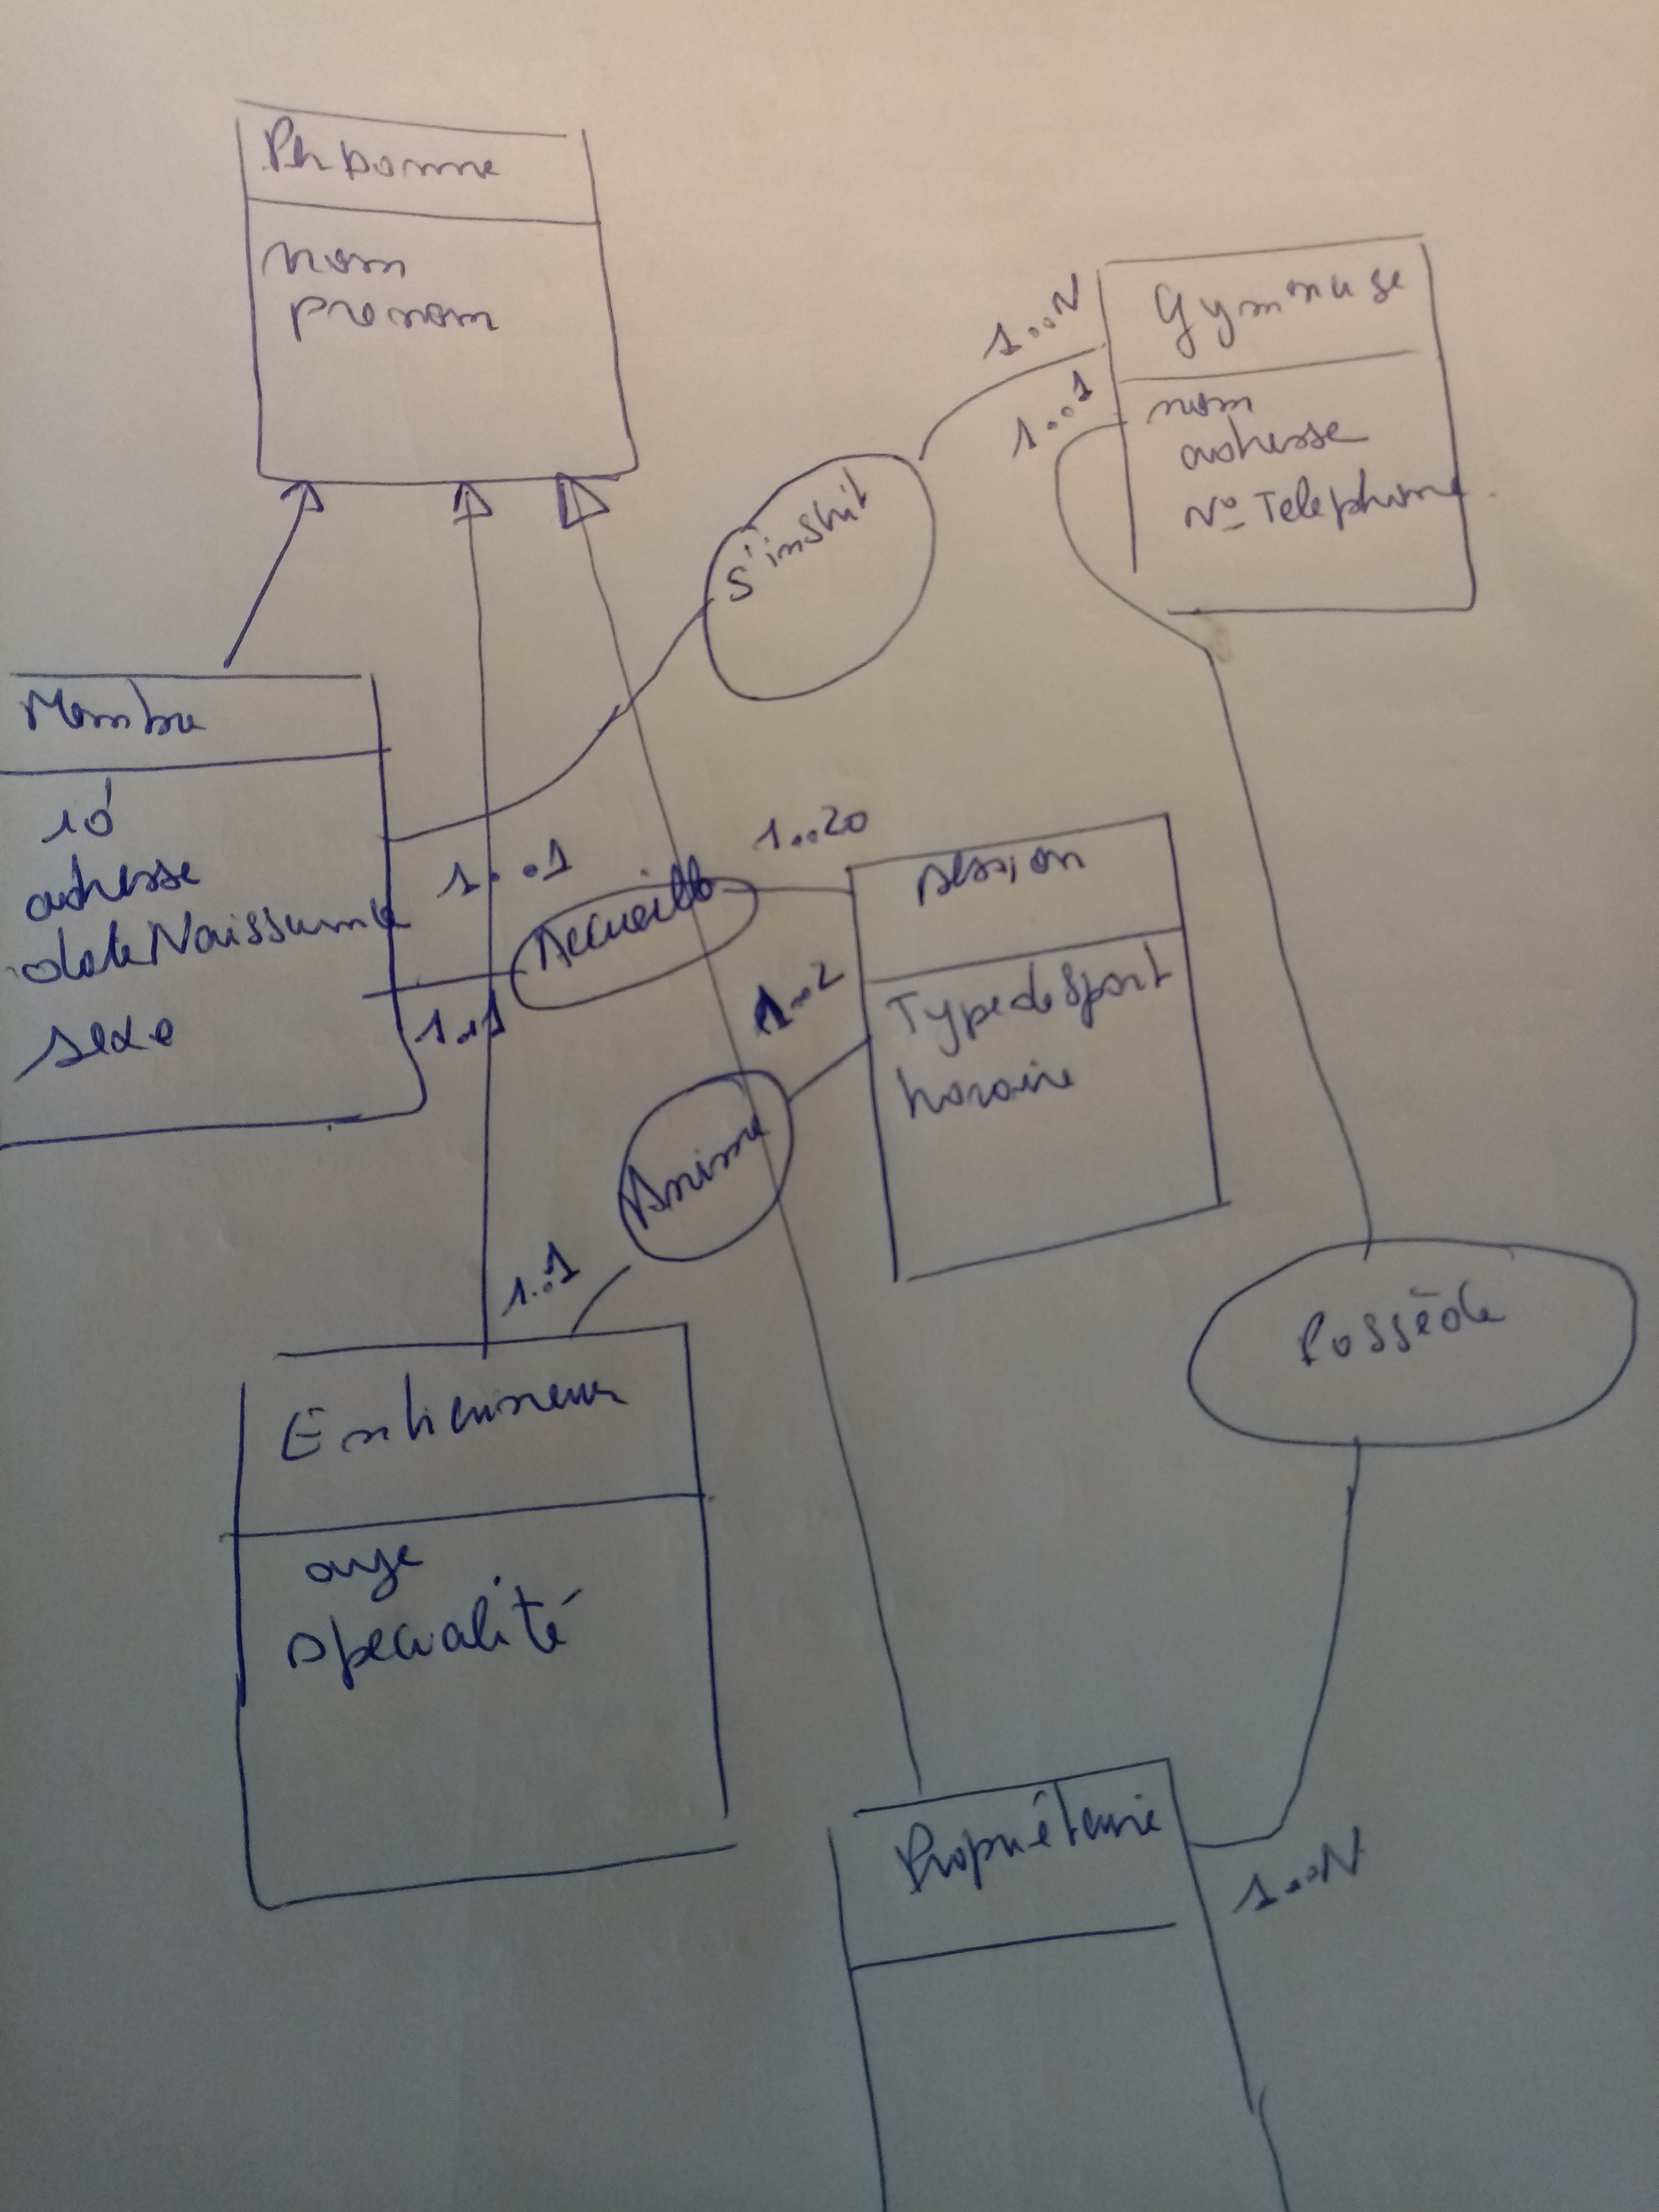 Personne
nom
prenom
1..N
Gymnase
1..1
nom
adresse
N° Telephone
s'inscrit
Membre
id
adresse
dateNaissance
sexe
1..1
Accueille
1..20
session
1..1
1..2
Type de Sport
horaire
Anime
1..1
Possède
Entraineur
age
specialité
Propriétaire
1..N